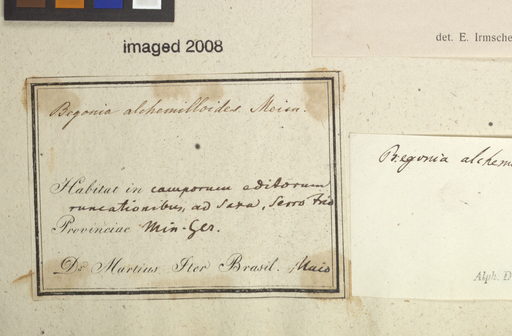 imaged 2008
det. E. Irmsche
Begonia alchemilloides Meisn.
Habitat in camporum editorum
ad Saxa, Serro Frio
Provinciae Min. Ger.
Dr. Martius Iter Brasil. Maio
Begonia alchem
Alph. D